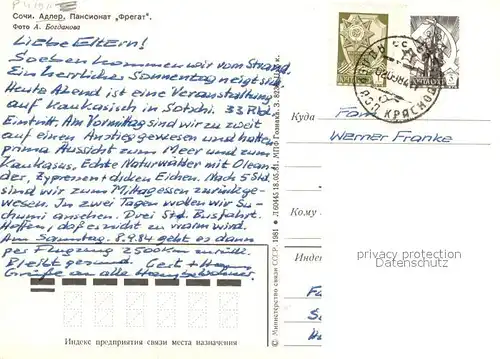 Сочи. Адлер. Пансионат „Фрегат".
Фото А. Богданова
Liebe Eltern!
Soeben kommen wir vom Strand.
Ein herrlicher Sonnentag neigt sich.
Heute Abend ist eine Veranstaltung
auf Kaukasisch in Sotchi. 33 Rbl
Eintritt. Am Vormittag sind wir zu zweit
auf einen Anstieg gewesen und hatten
prima Aussicht zum Meer und zum
Kaukasus. Echte Naturwälder mit Olean-
der, Zypressen dicken Eichen. Nach 5 Std.
sind wir zum Mittagessen zurückge-
wesen. In zwei Tagen wollen wir Su-
chumi ansehen. Drei Std. Busfahrt.
Hoffen, daß es nicht zu warm wird.
Am Sonntag. 8.9.84 geht es dann
per Flugzeug 2500 km zurück.
Bleibt gesund. Gert +
Grüße an alle Hausbewohner.
Индекс предприятия связи места назначения
© Министерство связи СССР. 1981
Л 60445 18.05.81. МПФ Гознака. З.
Куда
Fam
Werner Franke
Кому
privacy protection
Datenschutz
Индекс
АДЛЕР
КРАСНОД